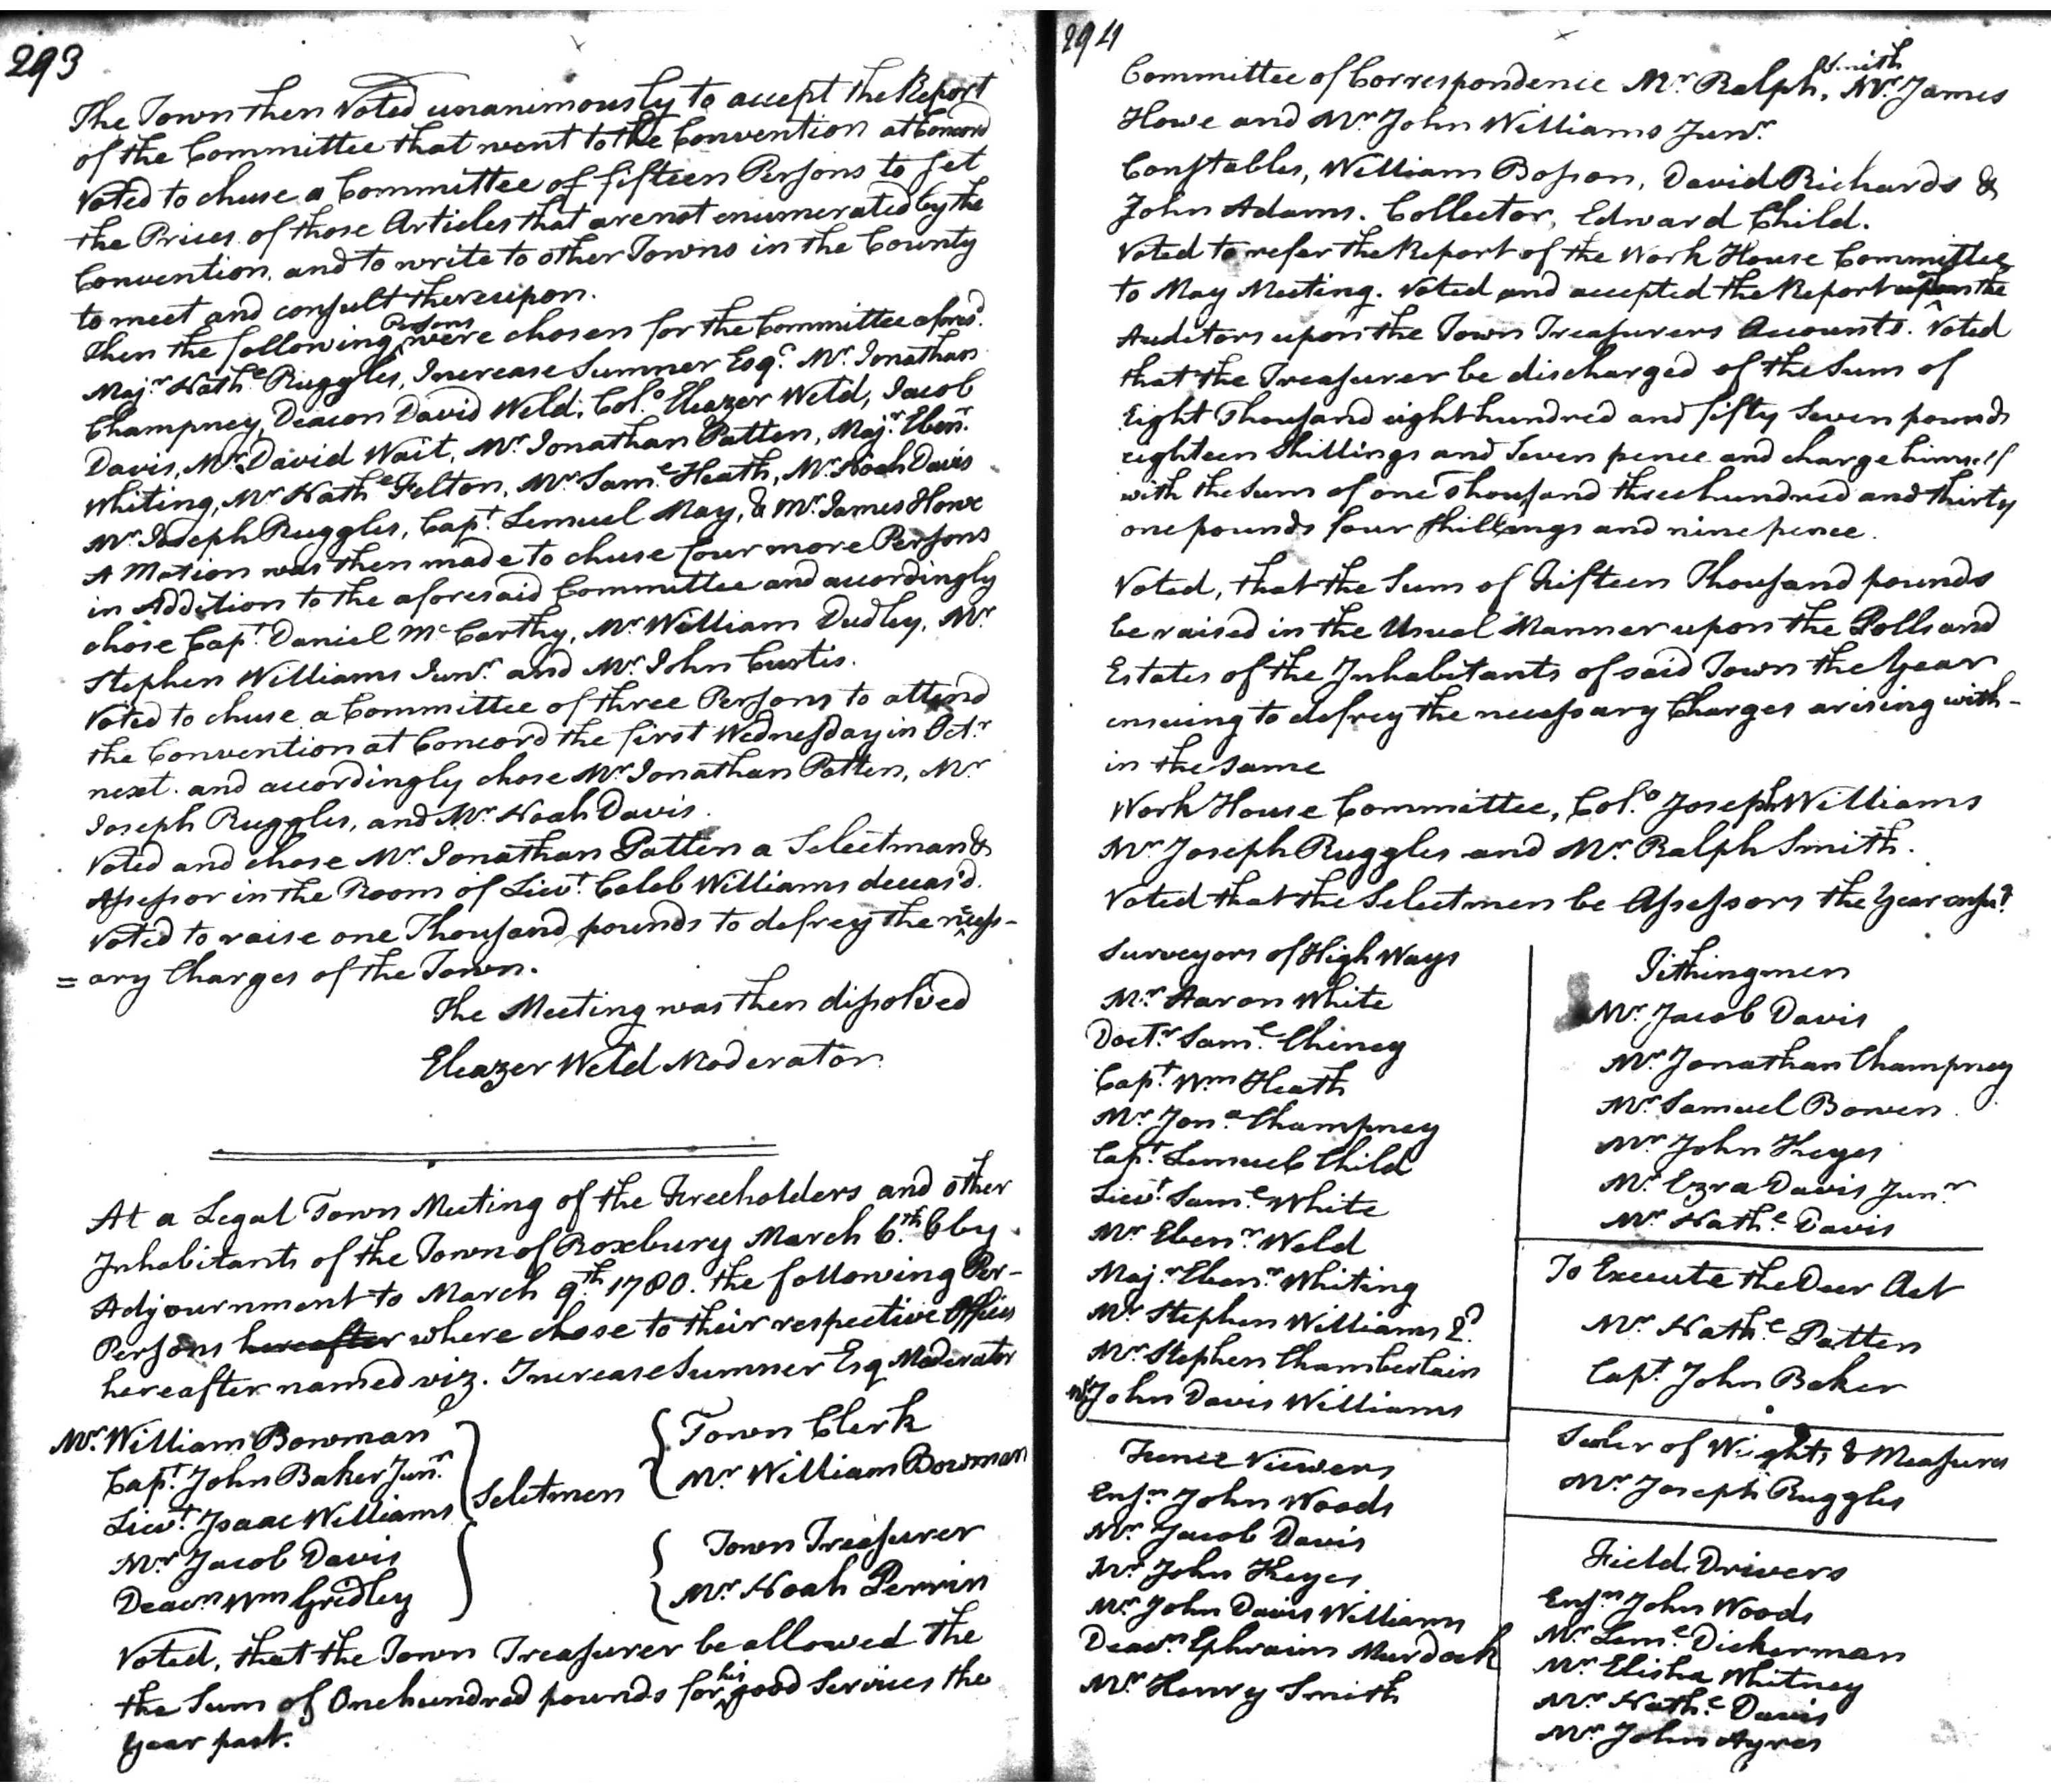 293
The Town then Voted unanimously to accept the Report
of the Committee that went to the Convention at Concord
Voted to chuse a Committee of fifteen Persons to set
the Prices of those Articles that are not enumerated by the
Convention, and to write to other Towns in the County
to meet and consult thereupon.
Then the following Persons were chosen for the Committee afores.d
Maj.r Nath.l Ruggles, Increase Sumner Esq.r Mr. Jonathan
Champney, Deacon David Weld, Col.o Eleazer Weld, Jacob
Davis, Mr. David Wait, Mr. Jonathan Patten, Maj.r Eben.r
Whiting, Mr. Nath.l Felton, Mr. Sam.l Heath, Mr. Noah Davis
Mr. Joseph Ruggles, Cap.t Lemuel May, & Mr. James Howe
A Motion was then made to chuse four more Persons
in Addition to the aforesaid Committee and accordingly
chose Cap.t Daniel McCarthy, Mr. William Dudley, Mr.
Stephen Williams Jun.r and Mr. John Curtis.
Voted to chuse a Committee of three Persons to attend
the Convention at Concord the first Wednesday in Oct.r
next. and accordingly chose Mr. Jonathan Patten, Mr.
Joseph Ruggles, and Mr. Noah Davis.
Voted and chose Mr. Jonathan Patten a Selectman &
Assessor in the Room of Lieu.t Caleb Williams deceas'd.
Voted to raise one Thousand pounds to defrey the necess-
=ary Charges of the Town.
The Meeting was then dissolved
Eleazer Weld Moderator.
At a Legal Town Meeting of the Freeholders and other
Inhabitants of the Town of Roxbury March 6.th & by
Adjournment to March 9.th 1780. the following Per-
Persons hereafter where chose to their respective Offices
hereafter named viz. Increase Sumner Esq Moderator
Mr. William Bowman
Cap.t John Baker Jun.r
Lieu.t Isaac Williams
Mr. Jacob Davis
Deacn Wm Gridley
Seletmen
Town Clerk
Mr. William Bowman
Town Treasurer
Mr. Noah Perrin
Voted, that the Town Treasurer be allowed the
the Sum of One hundred pounds for his good Services the
Year past.
294
Committee of Correspondence Mr. Ralph Smith, Mr. James
Howe and Mr. John Williams Jun.r
Constables, William Bosson, David Richards &
John Adams. Collector, Edward Child.
Voted to refer the Report of the Work House Committee
to May Meeting. Voted and accepted the Report upon the
Auditors upon the Town Treasurers Accounts. Voted
that the Treasurer be discharged of the Sum of
Eight Thousand eight hundred and fifty Seven pounds
eighteen Shillings and Seven pence and charge himself
with the Sum of one Thousand three hundred and thirty
one pounds four Shillings and nine pence.
Voted, that the Sum of Fifteen Thousand pounds
be raised in the Usual Manner upon the Polls and
Estates of the Inhabitants of said Town the Year
ensuing to defrey the necessary Charges arising with-
in the Same
Work House Committee, Col.o Joseph Williams
Mr. Joseph Ruggles and Mr. Ralph Smith.
Voted that the Selectmen be Assessors the Year
Surveyors of High Ways
Mr. Aaron White
Doct.r Sam.l Chiney
Cap.t Wm Heath
Mr. Jon.a Champney
Cap.t Lemuel Child
Lieu.t Sam.l White
Mr. Eben.r Weld
Maj.r Eben.r Whiting
Mr. Stephen Williams 2.d
Mr. Stephen Chamberlain
Mr John Davis Williams
Fence Viewers
Ens.n John Woods
Mr. Jacob Davis
Mr. John Keyes
Mr. John Davis Williams
Deacn Ephraim Murdock
Mr. Henry Smith
Tithingmen
Mr. Jacob Davis
Mr. Jonathan Champney
Mr. Samuel Bowen
Mr. John Keyes
Mr. Ezra Davis Jun.r
Mr. Nath.l Davis
To Execute the Deer Act
Mr. Nath.l Patten
Cap.t John Baker
Sealer of Weights & Measures
Mr. Joseph Ruggles
Field Drivers
Ens.n John Woods
Mr. Lem.l Dickerman
Mr. Elisha Whitney
Mr. Nath.l Davis
Mr. John Ayres